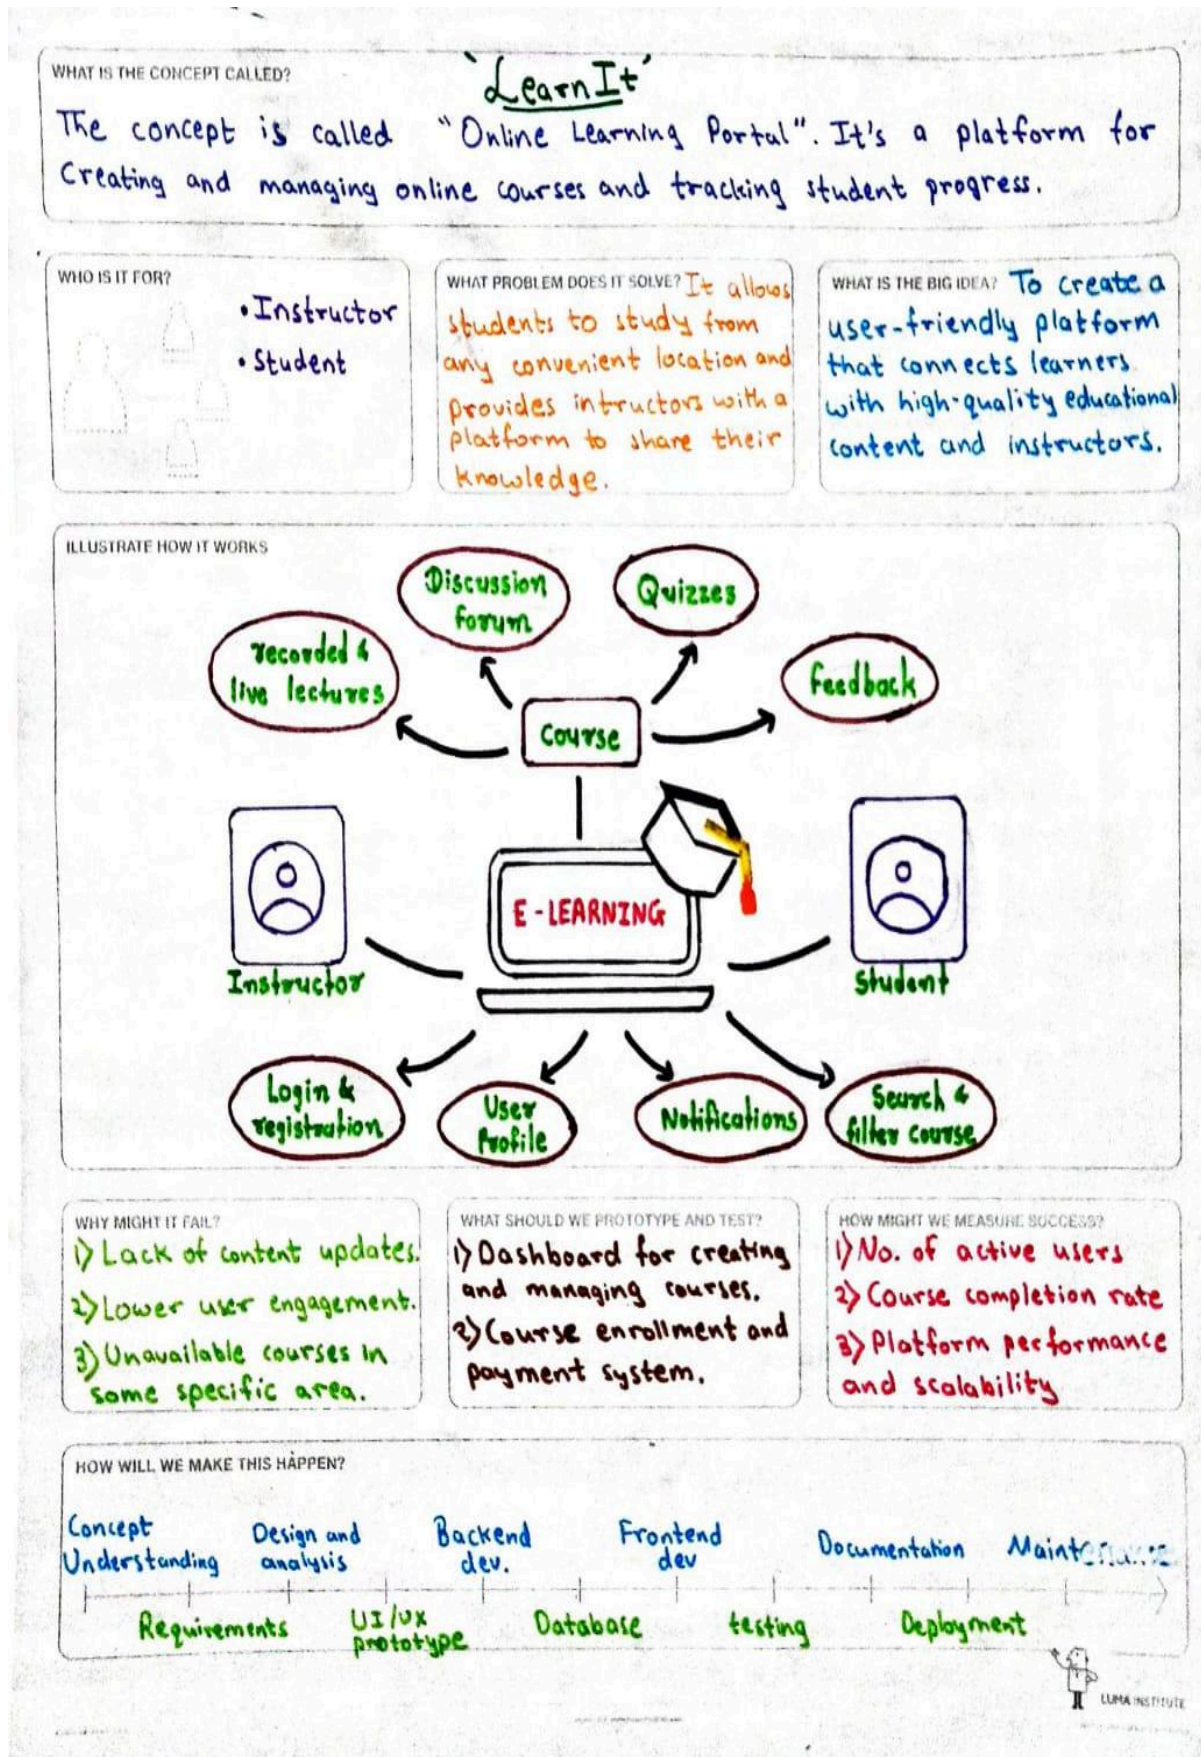 WHAT IS THE CONCEPT CALLED?
'LearnIt'
The concept is called "Online Learning Portal". It's a platform for
Creating and managing online courses and tracking student progress.
WHO IS IT FOR?
• Instructor
• Student
WHAT PROBLEM DOES IT SOLVE? It allows
students to study from
any convenient location and
provides intructors with a
platform to share their
knowledge.
WHAT IS THE BIG IDEA? To create a
user-friendly platform
that connects learners
with high-quality educational
content and instructors.
ILLUSTRATE HOW IT WORKS
Discussion
forum
Quizzes
recorded &
live lectures
Feedback
Course
E-LEARNING
Instructor
Student
Login &
registration
User
Profile
Notifications
Search &
filter course
WHY MIGHT IT FAIL?
1) Lack of content updates.
2) Lower user engagement.
3) Unavailable courses in
some specific area.
WHAT SHOULD WE PROTOTYPE AND TEST?
1) Dashboard for creating
and managing courses.
2) Course enrollment and
payment system.
HOW MIGHT WE MEASURE SUCCESS?
1) No. of active users
2) Course completion rate
3) Platform performance
and scalability
HOW WILL WE MAKE THIS HAPPEN?
Concept
Understanding
Design and
analysis
Backend
dev.
Frontend
dev
Documentation
Maintenance
Requirements
UI/UX
prototype
Database
testing
Deployment
LUMA INSTITUTE